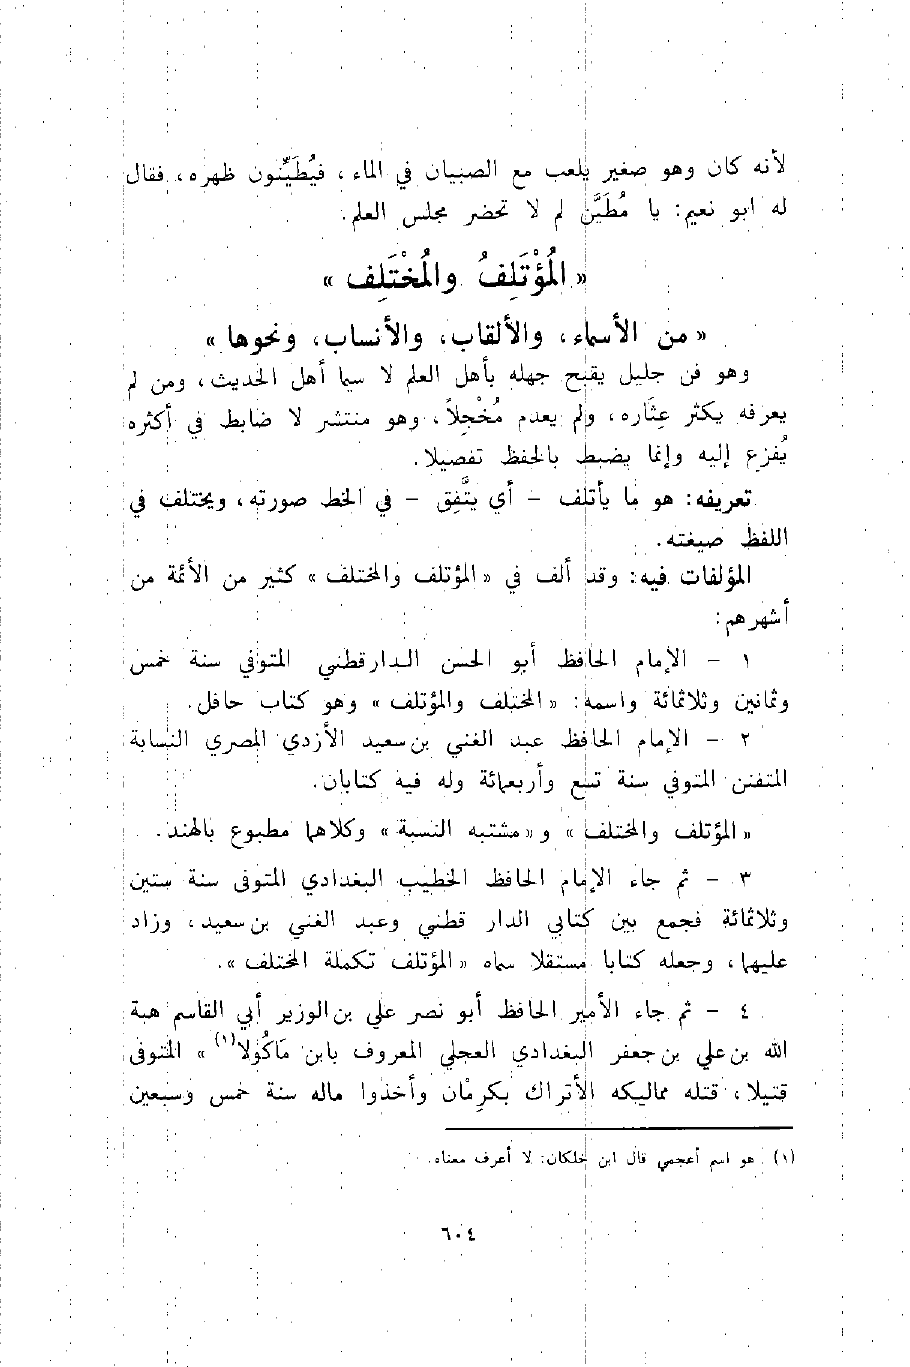 لأنه كان وهو صغير يلعب مع الصبيان في الماء ، فيُطَيِّنون ظهره ، فقال
له ابو نعيم: يا مُطَيَّن لم لا تحضر مجلس العلم.
« المُؤْتَلِفُ والمُخْتَلِف »
« من الأسماء، والألقاب، والأنساب، ونحوها »
وهو فن جليل يقبح جهله بأهل العلم لا سيما أهل الحديث، ومن لم
يعرفه يكثر عِثَاره، ولم يعدم مُخْجِلاً، وهو منتشر لا ضابط في أكثره
يُفزع إليه وإنما يضبط بالحفظ تفصيلا.
تعريفه: هو ما يأتلف - أي يتَّفِق - في الخط صورته، ويختلف في
اللفظ صيغته.
المؤلفات فيه: وقد ألف في « المؤتلف والمختلف » كثير من الأئمة من
أشهرهم:
١ - الإمام الحافظ أبو الحسن الدارقطني المتوفي سنة خمس
وثمانين وثلاثمائة واسمه: « المختلف والمؤتلف » وهو كتاب حافل.
٢ - الإمام الحافظ عبد الغني بن سعيد الأزدي المصري النسابة
المتفنن المتوفي سنة تسع وأربعمائة وله فيه كتابان.
« المؤتلف والمختلف » و « مشتبه النسبة » وكلاهما مطبوع بالهند.
٣ - ثم جاء الإمام الحافظ الخطيب البغدادي المتوفى سنة ستين
وثلاثمائة فجمع بين كتابي الدار قطني وعبد الغني بن سعيد، وزاد
عليهما، وجعله كتابا مستقلا سماه « المؤتلف تكملة المختلف ».
٤ - ثم جاء الأمير الحافظ أبو نصر علي بن الوزير أبي القاسم هبة
الله بن علي بن جعفر البغدادي العجلي المعروف بابن مَاكُولا(١) » المتوفى
قتيلا، قتله مماليكه الأتراك بكرِمْان وأخذوا ماله سنة خمس وسبعين
(١) هو اسم أعجمي قال ابن خلكان: لا أعرف معناه.
٦٠٤